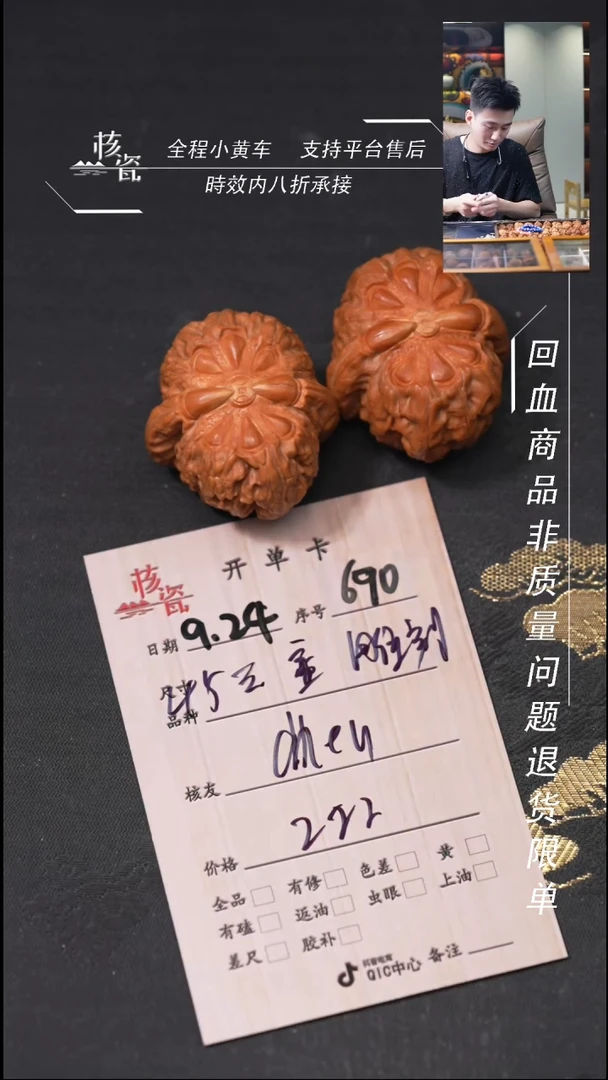 核瓷
全程小黄车 支持平台售后
時效内八折承接
回血商品非质量问题退货限单
核瓷
开单卡
日期 9.24 序号 690
尺寸
品种
核友
价格
全品 有修 色差 黄
有磕 返油 虫眼 上油
差尺 胶补
抖音电商
QIC中心 备注